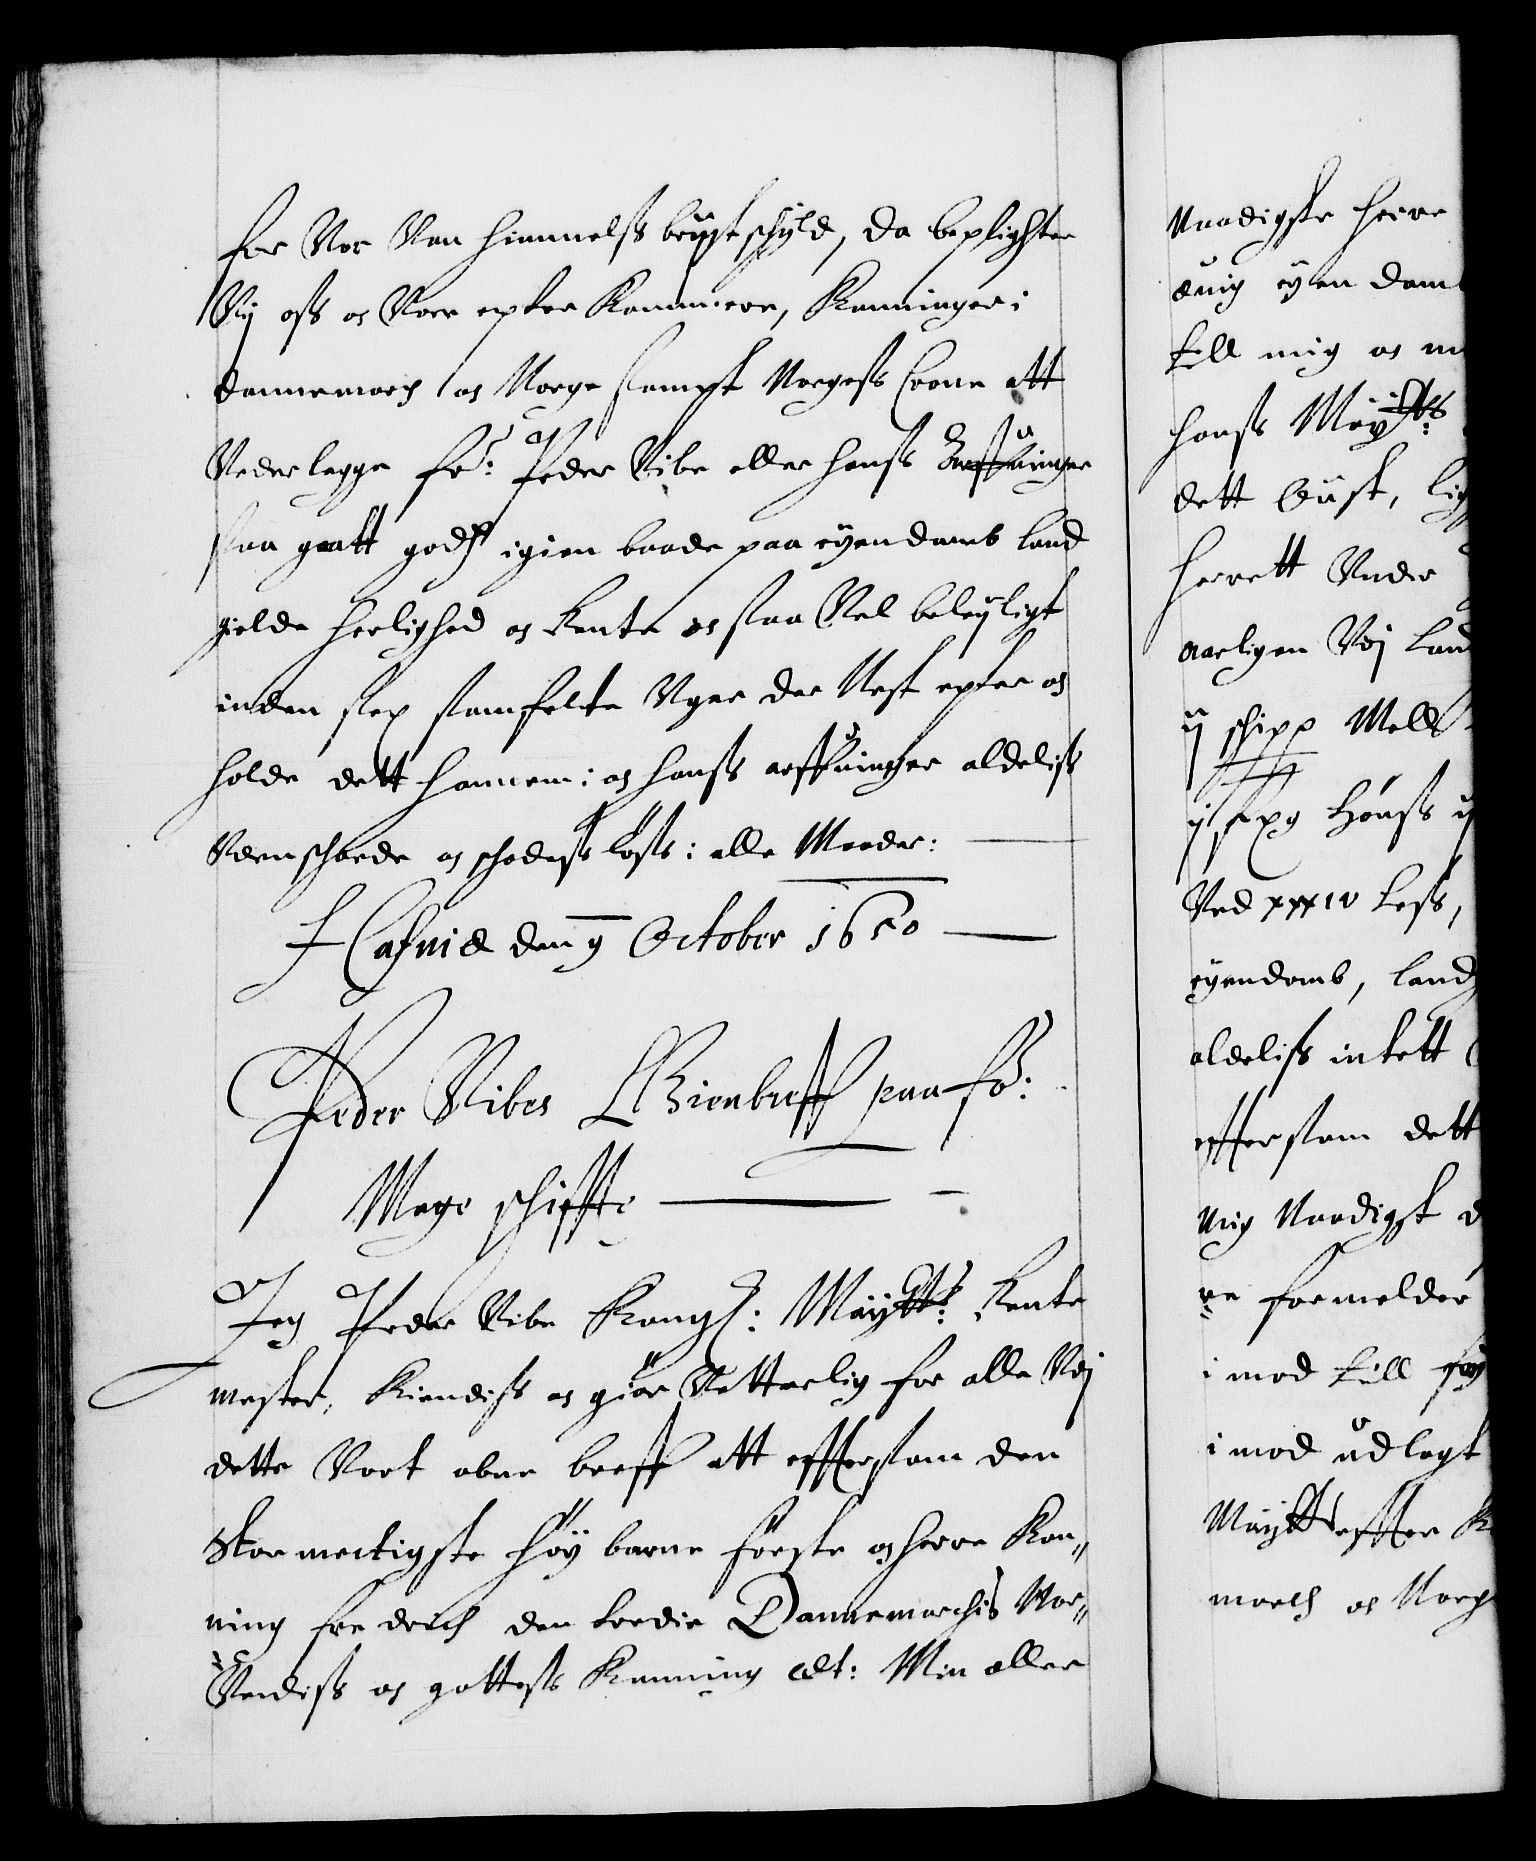 for Vor Van hiemmelss brøst schyld, da bepligter
Vy oss og Vore epter Kommere, Konninger i
dannemarch og Norge sampt Norgess Crone att
Vederlegge fe: Peder Vibe eller hanss Arffuinger
saa gaatt godz igien baade paa eyendomb land
gielde herlighed og Rente og saa Vel beleyligt
inden sex samfelte Vger der Nest epter og
holde dett hannem: og hanss arffuinger aldeliss
Vden schaede og schadesløss i alle Maader:
Hafniæ den 9 October 1650
Peder Vibes Gienbreff paa fe:
Mage schiffte
Jeg Peder Vibe Kongl: Mäytts: Rente
mester, Kiendiss og giør Vitterlig for alle Ved
dette Vort obne breff att efftersom den
Stormectigste höy baarne förste og herre Kon„
ning frederich den tredie Dannemarchis Nor„
Vendiss og gottess Konning ædt: Min aller
Naadigste herre
æuig eyendomb
till mig og
hanss Mäytts:
dett Gust,
herrett Vnder
aarligen Vdj
ij schipp Mell
ij Høns
Ved xxxiv Less,
eyendomb, land
aldeliss intett
effter som dett
Mig Naadigst
re formelder
i mod till
i mod udlagt
Mäytts effter
march og Norge